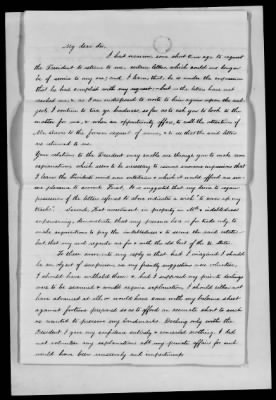 My dear Sir,
I had occasion some short time ago to request
the President to return to me certain letters which could no longer
be of service to any one; and I learn that he is under the impression
that he has complied with my request - but - the letters have not
reached me & as I am indisposed to write to him again upon the sub-
ject I venture to tax your kindness so far as to ask you to look to the
matter for me, & when an opportunity offers, to call the attention of
to the former request of mine, & to see that the said letters
are returned to me.
Your relation to the President may enable me through you to make some
explanations which seem to be necessary to remove erroneous impressions that
I learn the President must now entertain & which it would afford
me pleasure to correct. First, It is suggested that my desire to regain
possession of the letters referred to does indicate a wish "to cover up my
tracks". Second, that investment in property in
improvements, demonstrate that my purpose here is for trade only, to
make acquisitions to pay the indebtedness & to secure the real estate -
but that my real regards are for & with the old
To these views my reply is that had I imagined I should
be an object of suspicion in my friendly suggestions as volunteer,
I should have withheld them & had I supposed my private dealings
were to be scanned & would require explanation, I should either not
have advanced at all or would have come with my balance sheet
against fortune prepared so as to afford an accurate chart to such
as wanted to pursue my landmarks. Dealing only with the
President I give my confidence entirely & concealed nothing. I did
not volunteer any explanations of my private affairs for such
would have been unseemly and impertinent.